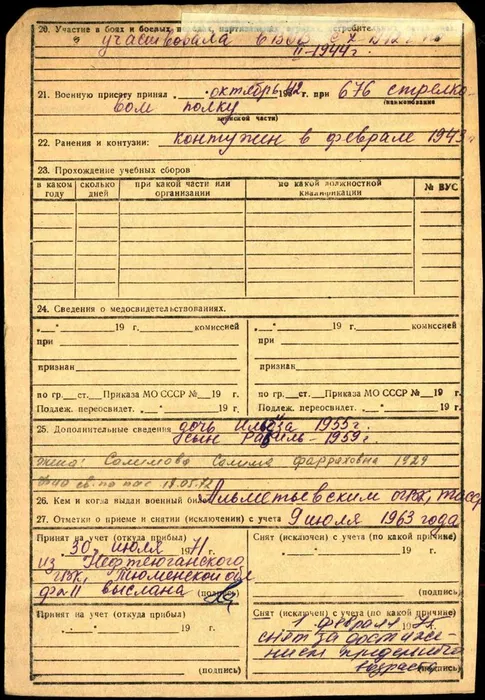 20. Участие в боях и боевых
участвовала в ВОВ с X-1942 по
II-1944 г.
21. Военную присягу принял октябрь 1942 г. при 676 стрелко-
вом полку
(наименование
воинской части)
22. Ранения и контузии: контужен в феврале 1943 г
23. Прохождение учебных сборов
в каком году
сколько дней
при какой части или организации
по какой должностной квалификации
№ ВУС
24. Сведения о медосвидетельствованиях.
„__“ 19 г. комиссией
„__“ 19 г. комиссией
при
при
признан
признан
по гр. ст. Приказа МО СССР № 19 г.
по гр. ст. Приказа МО СССР № 19 г.
Подлеж. переосвидет. „__“ 19 г.
Подлеж. переосвидет. „__“ 19 г.
25. Дополнительные сведения дочь Ильвза 1955 г.
сын Равиль - 1959 г.
жена: Салимова Салима Фарраховна 1929
св. по пас 18.05.72
26. Кем и когда выдан военный билет Альметьевским ГВК, ТАССР
27. Отметки о приеме и снятии (исключении) с учета 9 июля 1963 года
Принят на учет (откуда прибыл)
„30“ июля 1971 г.
из Нефтеюганского
ГВК, Тюменской обл
ф II выслана (подпись)
Снят (исключен) с учета (по какой причине)
„__“ 19 г.
(подпись)
Принят на учет (откуда прибыл)
„__“ 19 г.
(подпись)
Снят (исключен) с учета (по какой причине)
„1“ февраля
снят за достиже-
нием предельного
возраста
(подпись)